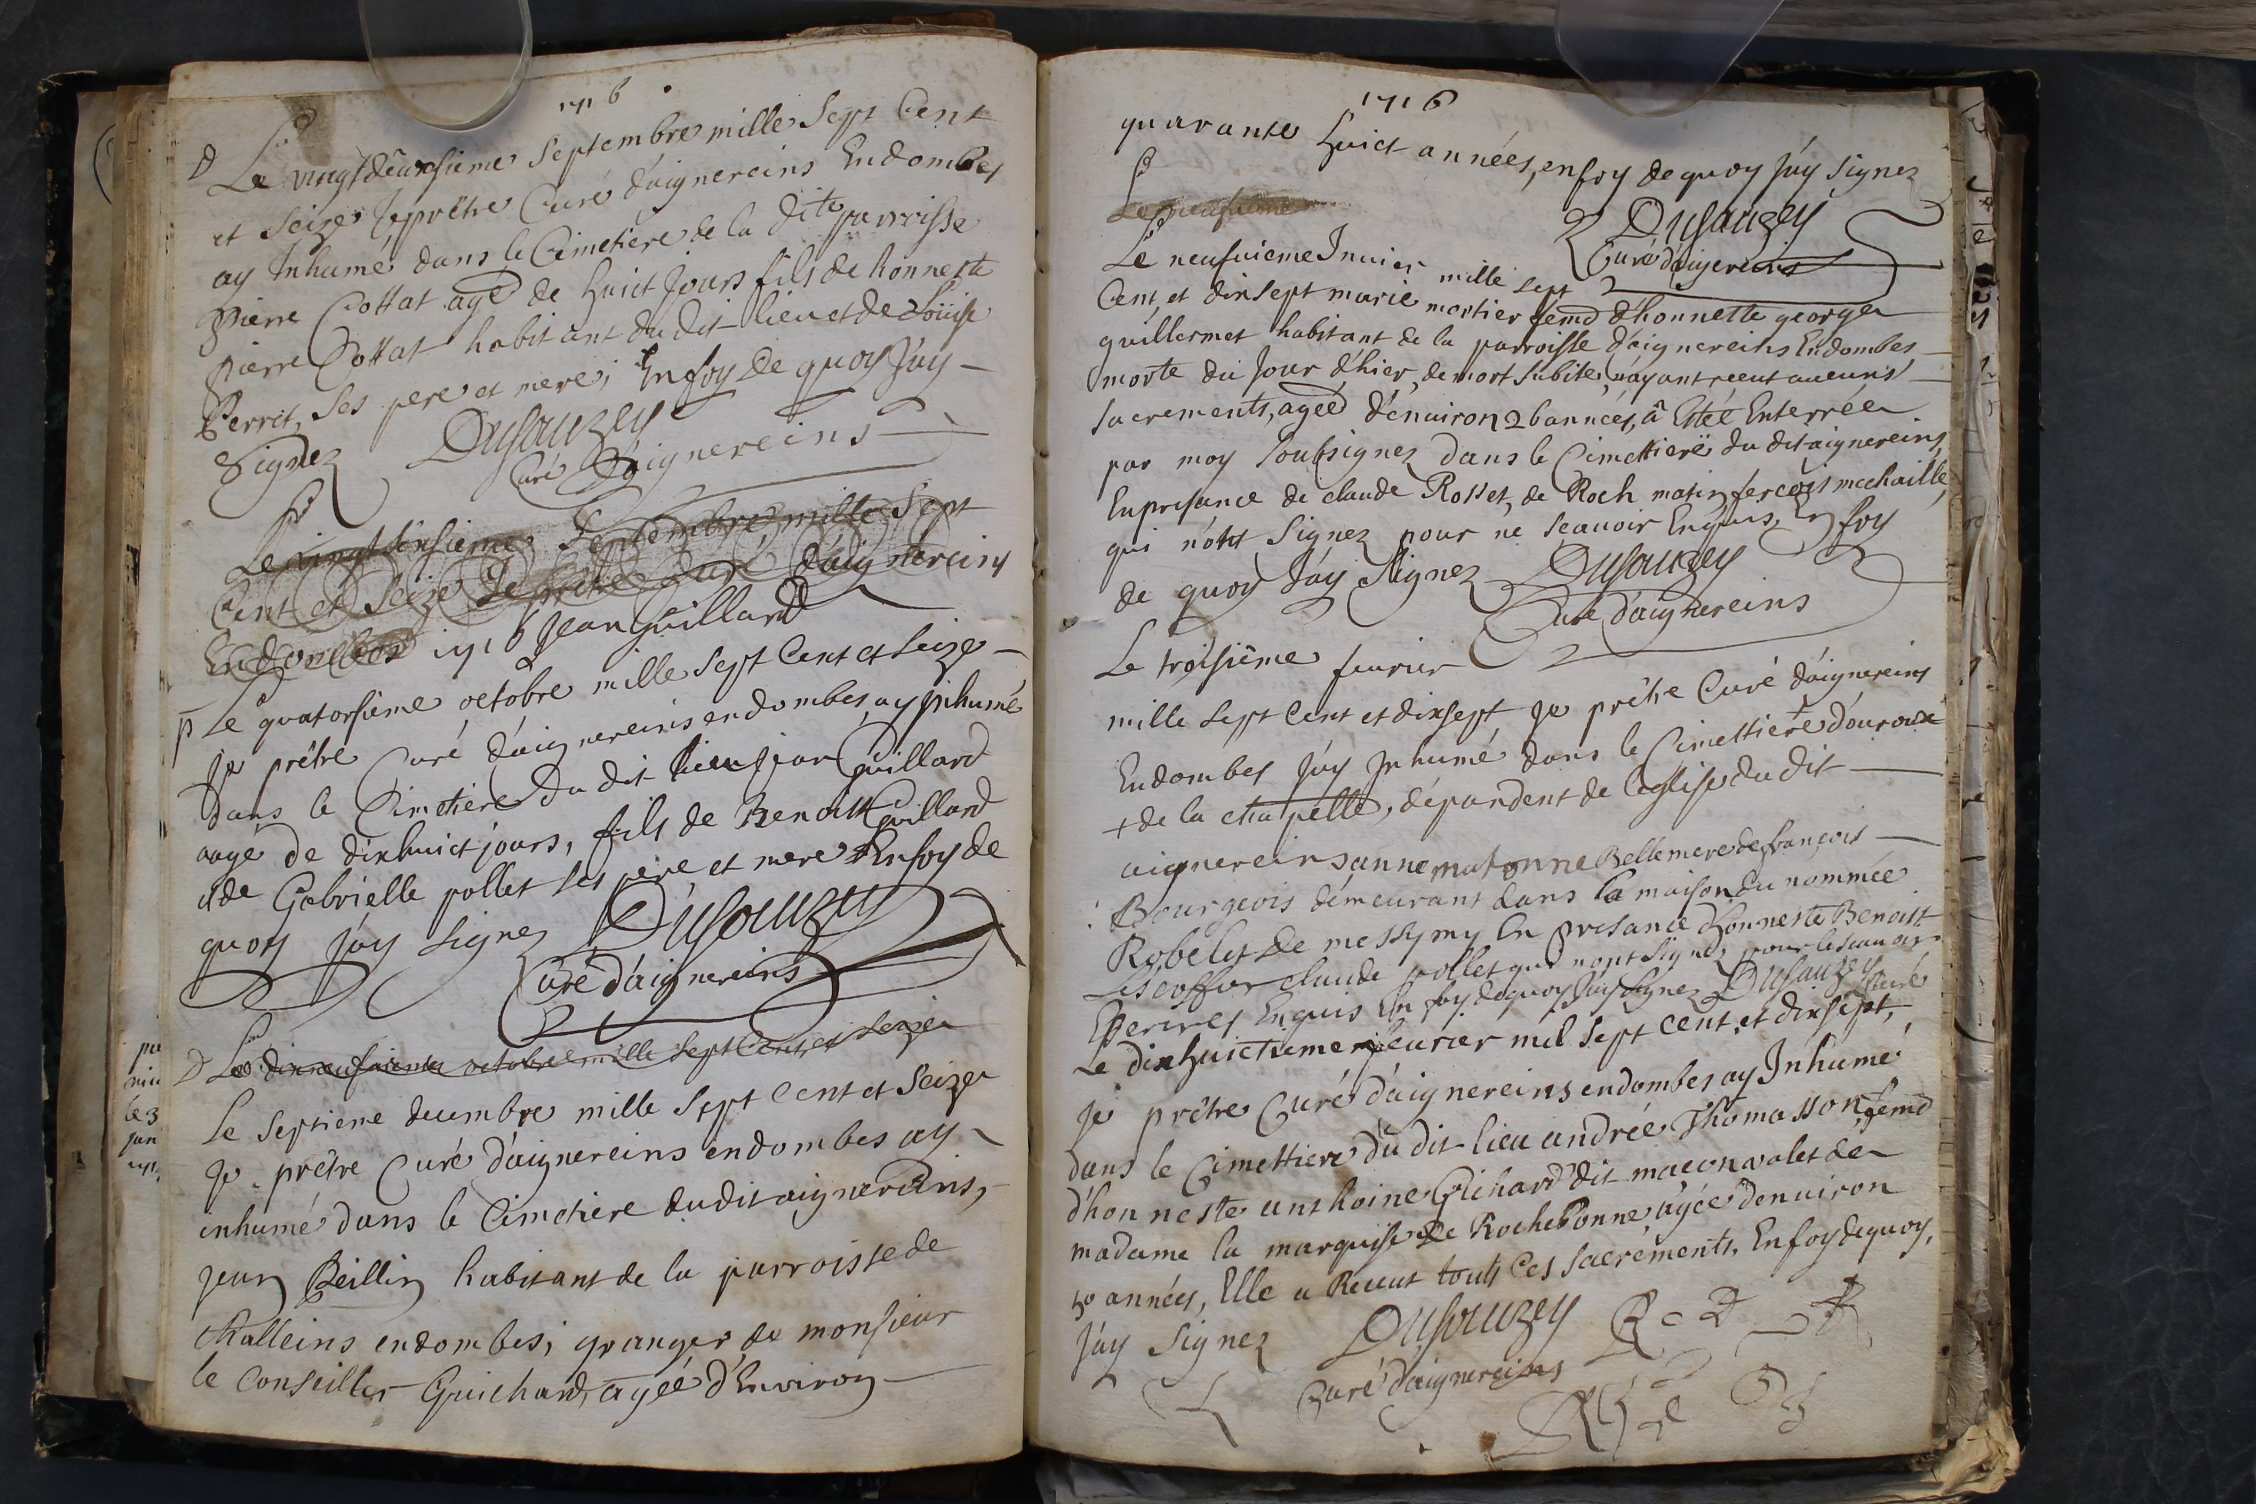 1716
Le vingtdeuxsieme Septembre mille Sept Cent
et Seize Je prêtre Curé d'aignereins Endombes
ay Inhumé dans le Cimetiere de la dite parroisse
pierre Cottat agé de huict Jours fils de honneste
pierre Cottat habitant du dit lieu et de Loüise
Perret, Ses pere et mere; En foy de quoy J'ay
Signez Dusauzey
Curé d'aignereins
Le Septembre mille Sept
Cent et Seize Je prêtre Curé d'aignereins
Endombes 1716 Jean Guillard
Le quatorsieme octobre mille Sept Cent et Seize
Je prêtre Curé d'aignereins endombes, ay Jnhumé
dans le Cimetiere du dit lieu jean Guillard
aagé de dixhuict jours, fils de Benoist Guillard
et de Gabrielle pollet Ses pere et mere En foy de
quoy J'ay Signez Dusauzey
Curé d'aignereins
Le dixneufvieme octobre mille Sept Cent et Seize
Le Septieme decembre mille Sept Cent et Seize
Je prêtre Curé d'aignereins endombes ay
inhumé dans le Cimetiere dudit aignereins,
jean Beillin habitant de la parroisse de
Challeins endombes, granger de monsieur
le Conseiller Guichard, agée d'Environ
1716
quarante huict années, en foy de quoy J'ay Signez
Dusauzey
Curé d'aignereins
Le neufvieme
Le neufvieme Janvier mille Sept
Cent, et dixsept marie mortier fem̃e d'honnette george
guillermet habitant de la parroisse d'aignereins Endombes
morte du Jour d'hier, de mort Subite, n'ayant receut aucuns
Sacrements, agée d'énviron 26 années, â Estée Enterrée
par moy Soubsignez dans le Cimettiere du dit aignereins,
En presance de claude Rosset, de Roch matin, mechaille,
qui n'ont Signez pour ne Scavoir Enquis, En foy
de quoy J'ay Signez Dusauzey
Curé d'aignereins
Le troisiême fevrier
mille Sept Cent et dixsept Je prêtre Curé d'áignereins
Endombes J'ay Jnhumé dans le Cimettiere d'ouroux
+ de la chapelle, dépandent de l'eglise du dit
aignereins anne matonne Bellemere de françois
Bourgeois démeurant dans la maison du nommée
Robelet de messymy En presance d'honneste Benoist
Lescoffier claude pollet qui n'ont Signez pour
Enquis En foy de quoy J'ay Signez Dusauzey Curé
Le dixhuictieme feurier mil Sept Cent, et dixsept,
Je prêtre Curé d'aignereins endombes ay Inhumé
dans le Cimettiere du dit lieu andrée Thomasson fem̃e
d'honneste anthoine Richard dit maçon valet de
madame la marquise de Rochebonne, agée d'enuiron
50 années, Elle a Receut touts Ces Sacrements, En foy de quoy,
J'ay Signez Dusauzey
Curé d'aignereins